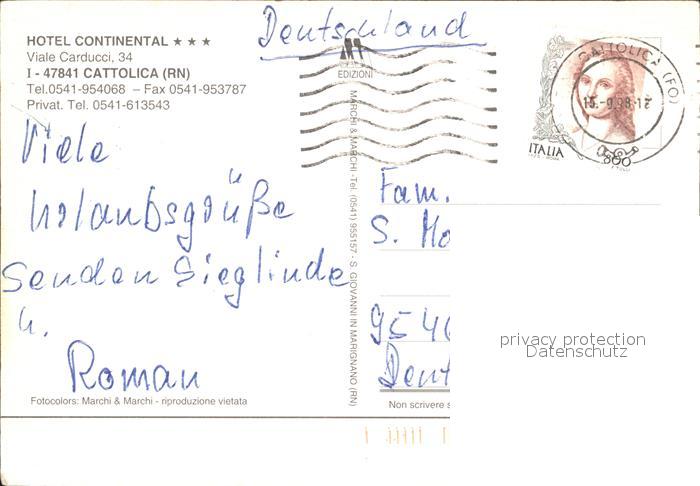 Deutschland
HOTEL CONTINENTAL ★ ★ ★
Viale Carducci, 34
I - 47841 CATTOLICA (RN)
Tel.0541-954068 – Fax 0541-953787
Privat. Tel. 0541-613543
EDIZIONI
MARCHI & MARCHI -Tel. (0541) 955157 - S. GIOVANNI IN MARIGNANO (RN)
CATTOLICA (FO)
15.-9.98-17
ITALIA
800
Viele
Urlaubsgrüße
Senden Sieglinde
u.
Roman
Fam.
S. Mo
9546
Deut
privacy protection
Datenschutz
Fotocolors: Marchi & Marchi - riproduzione vietata
Non scrivere s